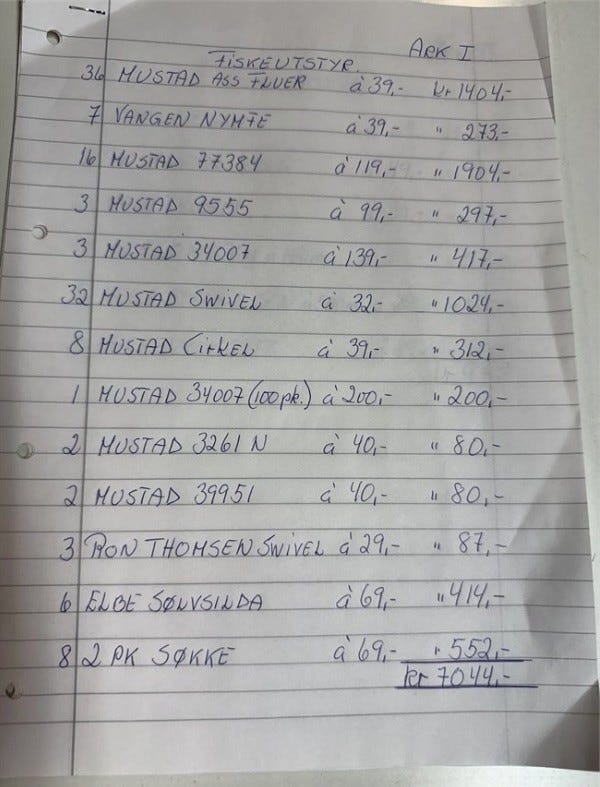 ARK I
FISKEUTSTYR
36 MUSTAD ASS FLUER à 39,- kr 1404,-
7 VANGEN NYMFE à 39,- " 273,-
16 MUSTAD 77384 à 119,- " 1904,-
3 MUSTAD 9555 à 99,- " 297,-
3 MUSTAD 34007 à 139,- " 417,-
32 MUSTAD SWIVEL à 32,- " 1024,-
8 MUSTAD CirKEL à 39,- " 312,-
1 MUSTAD 34007 (100 pk.) à 200,- " 200,-
2 MUSTAD 3261 N à 40,- " 80,-
2 MUSTAD 39951 à 40,- " 80,-
3 RON THOMSEN SWIVEL à 29,- " 87,-
6 ELBE SØLVSILDA à 69,- " 414,-
8 2 PK SØKKE à 69,- " 552,-
kr 7044,-